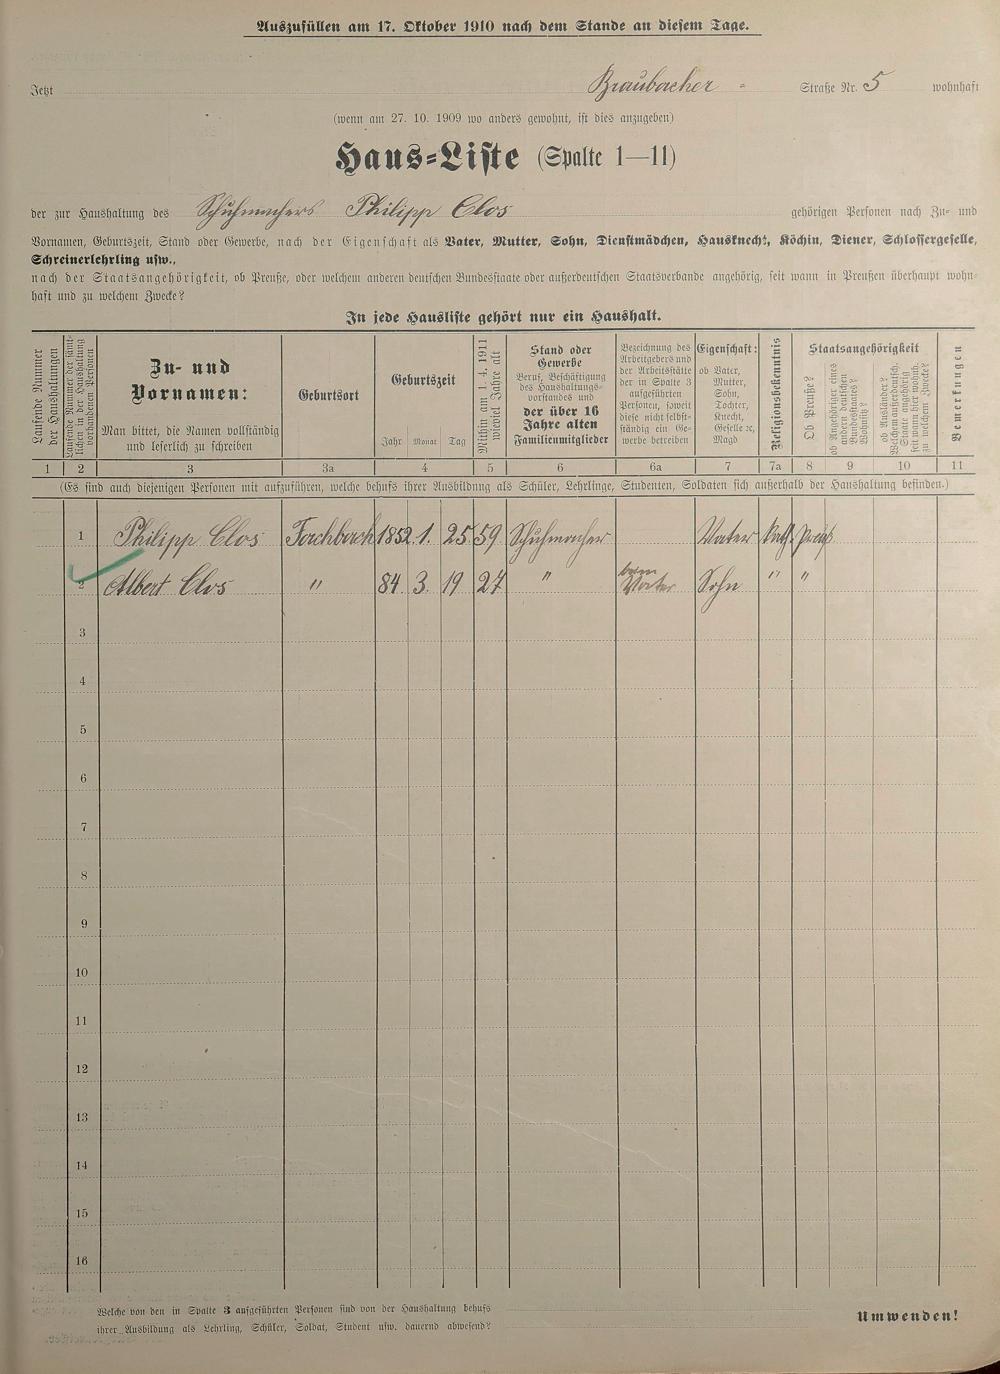 Auszufüllen am 17. Oktober 1910 nach dem Stande an diesem Tage.
Jetzt Braubacher - Straße Nr. 5 wohnhaft
(wenn am 27. 10. 1909 wo anders gewohnt, ist dies anzugeben)
Haus=Liste (Spalte 1—11)
der zur Haushaltung des Schuhmachers Philipp Clos gehörigen Personen nach Zu= und
Vornamen, Geburtszeit, Stand oder Gewerbe, nach der Eigenschaft als Vater, Mutter, Sohn, Dienstmädchen, Hausknecht, Köchin, Diener, Schlossergeselle,
Schreinerlehrling usw.,
nach der Staatsangehörigkeit, ob Preuße, oder welchem anderen deutschen Bundesstaate oder außerdeutschen Staatsverbande angehörig, seit wann in Preußen überhaupt wohn=
haft und zu welchem Zwecke?
In jede Hausliste gehört nur ein Haushalt.
Laufende Nummer
der Haushaltungen
Laufende Nummer der sämt=
lichen in der Haushaltung
vorhandenen Personen
Zu= und
Vornamen:
Man bittet, die Namen vollständig
und leserlich zu schreiben
Geburtsort
Geburtszeit
Jahr Monat Tag
Mithin am 1. 4. 1911
wieviel Jahre alt
Stand oder
Gewerbe
Beruf, Beschäftigung
des Haushaltungs=
vorstandes und
der über 16
Jahre alten
Familienmitglieder
Bezeichnung des
Arbeitgebers und
der Arbeitsstätte
der in Spalte 3
aufgeführten
Personen, soweit
diese nicht selbst=
ständig ein Ge=
werbe betreiben
Eigenschaft:
ob Vater,
Mutter,
Sohn,
Tochter,
Knecht,
Geselle ꝛc,
Magd
Religionsbekenntnis
Staatsangehörigkeit
Ob Preuße?
ob Angehöriger eines
andern deutschen
Bundesstaates?
Wohnsitz?
ob Ausländer?
Welchem außerdeutsch.
Staate angehörig
seit wann hier wohnh.
zu welchem Zwecke?
Bemerkungen
1 2 3 3a 4 5 6 6a 7 7a 8 9 10 11
(Es sind auch diejenigen Personen mit aufzuführen, welche behufs ihrer Ausbildung als Schüler, Lehrlinge, Studenten, Soldaten sich außerhalb der Haushaltung befinden.)
1 Philipp Clos 1852 1. 25. 59 Schuhmacher Vater Kath. Preuß
2 Albert Clos " 84. 3. 19 27 " beim Vater Sohn " "
3
4
5
6
7
8
9
10
11
12
13
14
15
16
Welche von den in Spalte 3 aufgeführten Personen sind von der Haushaltung behufs
ihrer Ausbildung als Lehrling, Schüler, Soldat, Student usw. dauernd abwesend?
Umwenden!